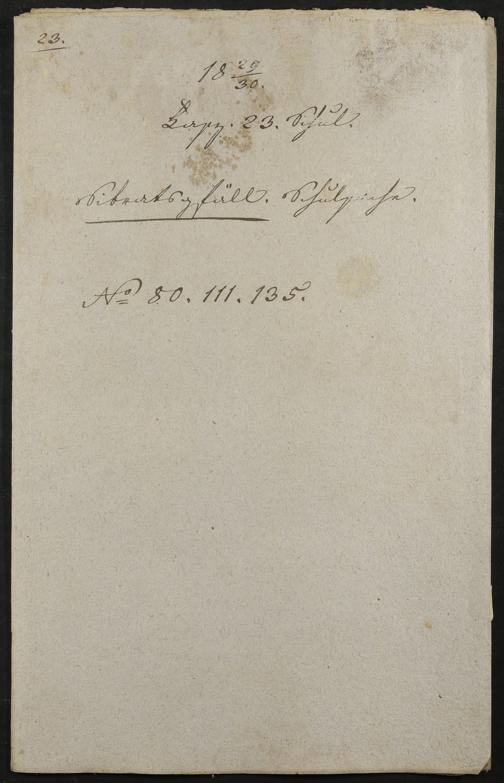 23.
18 29/30.
Fasz. 23. Schul.
Sibratsgfäll. Schulsache.
No 80. 111. 135.